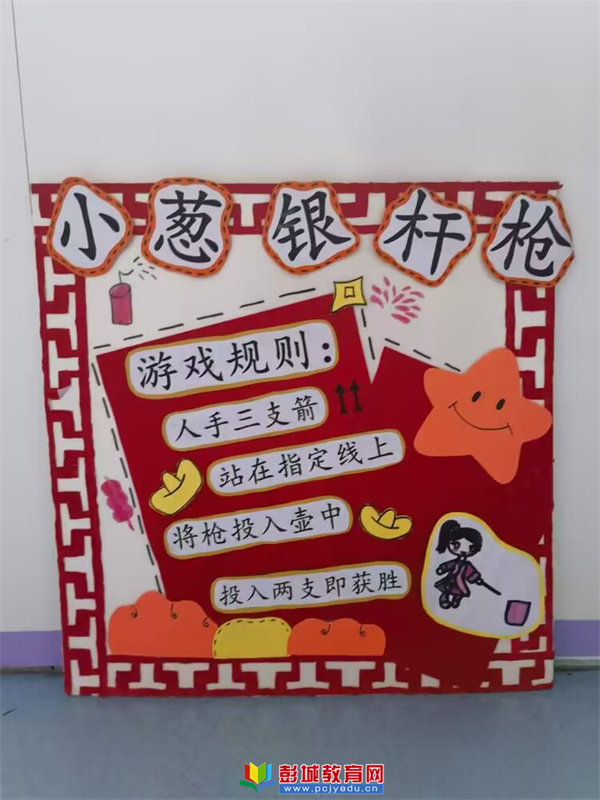 小葱银杆枪
游戏规则：
人手三支箭
站在指定线上
将枪投入壶中
投入两支即获胜
彭城教育网
www.pcjyedu.cn